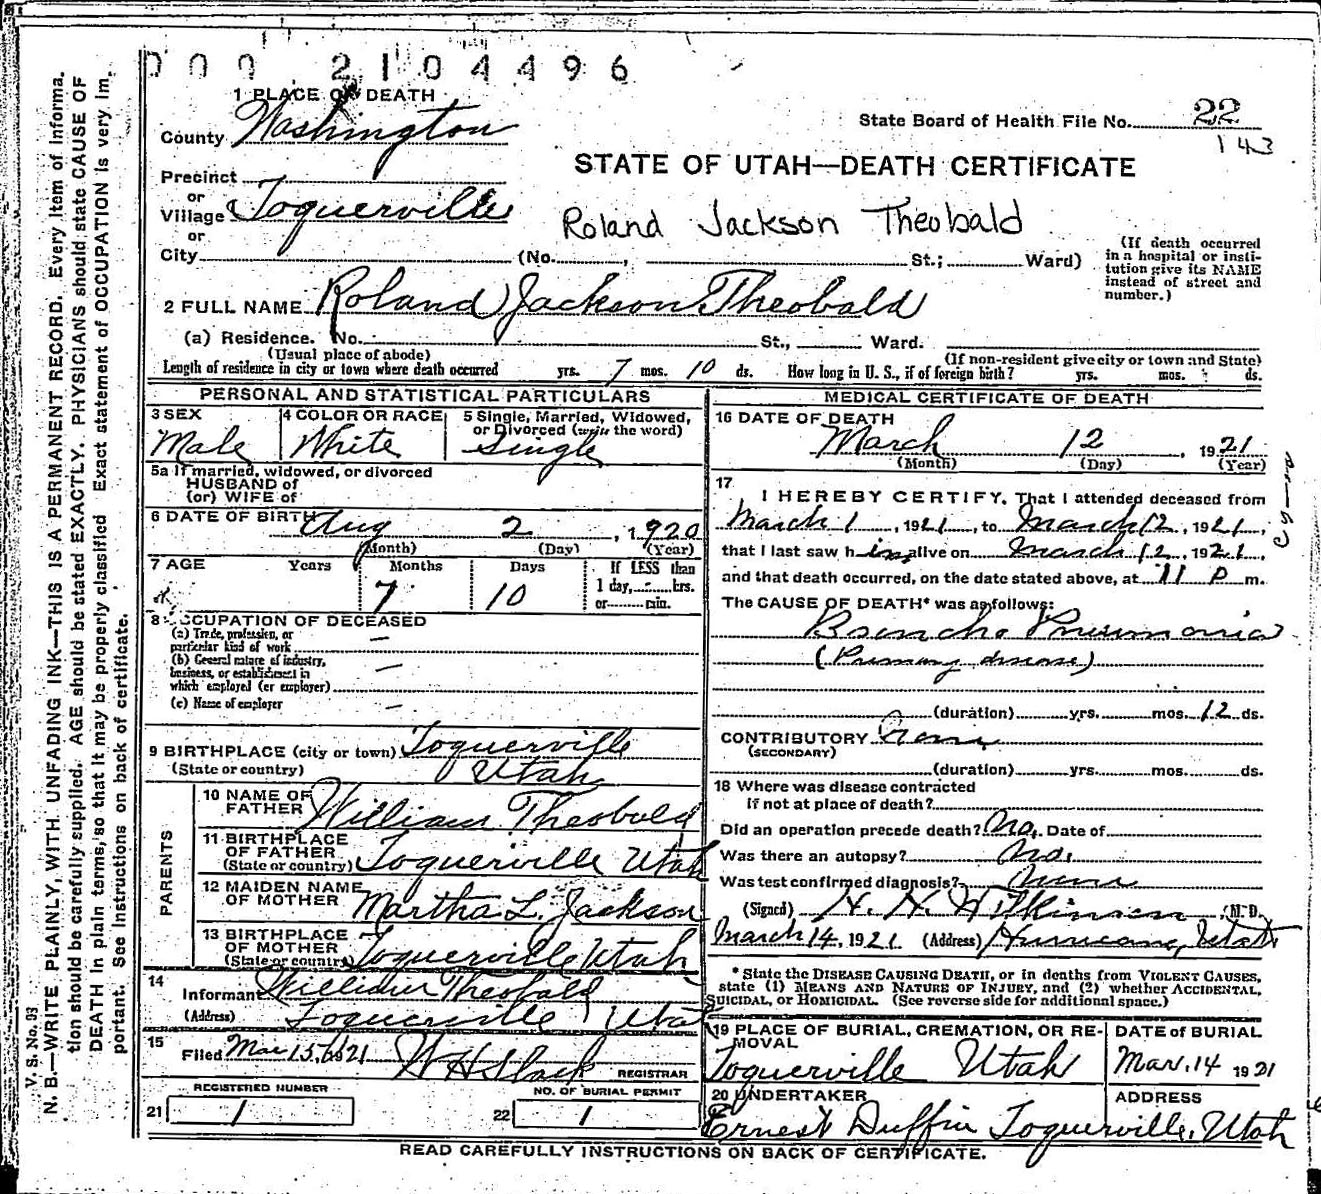 000 2104496
1 PLACE OF DEATH
County Washington
State Board of Health File No. 22
143
STATE OF UTAH—DEATH CERTIFICATE
Precinct
or
Village Toquerville
or
Roland Jackson Theobald
City (No. , St.; Ward)
(If death occurred in a hospital or institution give its NAME instead of street and number.)
2 FULL NAME Roland Jackson Theobald
(a) Residence. No. St., Ward.
(Usual place of abode) (If non-resident give city or town and State)
Length of residence in city or town where death occurred yrs. 7 mos. 10 ds. How long in U. S., if of foreign birth? yrs. mos. ds.
PERSONAL AND STATISTICAL PARTICULARS
3 SEX Male
4 COLOR OR RACE White
5 Single, Married, Widowed, or Divorced (write the word) Single
5a If married, widowed, or divorced
HUSBAND of
(or) WIFE of
6 DATE OF BIRTH Aug 2, 1920
(Month) (Day) (Year)
7 AGE Years Months Days If LESS than
1 day, hrs.
or min.
7 10
8 OCCUPATION OF DECEASED
(a) Trade, profession, or
particular kind of work —
(b) General nature of industry,
business, or establishment in
which employed (or employer) —
(c) Name of employer —
9 BIRTHPLACE (city or town) Toquerville
(State or country) Utah
PARENTS
10 NAME OF FATHER William Theobald
11 BIRTHPLACE OF FATHER (State or country) Toquerville Utah
12 MAIDEN NAME OF MOTHER Martha L. Jackson
13 BIRTHPLACE OF MOTHER (State or country) Toquerville Utah
14 Informant William Theobald
(Address) Toquerville Utah
15 Filed Mar 15, 1921 W H Slack REGISTRAR
21 REGISTERED NUMBER 1
22 NO. OF BURIAL PERMIT 1
MEDICAL CERTIFICATE OF DEATH
16 DATE OF DEATH
March 12, 1921
(Month) (Day) (Year)
17
I HEREBY CERTIFY, That I attended deceased from
March 1, 1921, to March 12, 1921,
that I last saw him alive on March 12, 1921,
and that death occurred, on the date stated above, at 11 P m.
The CAUSE OF DEATH* was as follows:
Broncho Pneumonia
(Primary disease)
(duration) yrs. mos. 12 ds.
CONTRIBUTORY None
(SECONDARY)
(duration) yrs. mos. ds.
18 Where was disease contracted
if not at place of death?
Did an operation precede death? No. Date of
Was there an autopsy? No.
Was test confirmed diagnosis? None
(Signed) H. H. Wilkinson (M. D.
March 14, 1921 (Address) Hurricane, Utah
* State the DISEASE CAUSING DEATH, or in deaths from VIOLENT CAUSES,
state (1) MEANS AND NATURE OF INJURY, and (2) whether ACCIDENTAL,
SUICIDAL, or HOMICIDAL. (See reverse side for additional space.)
19 PLACE OF BURIAL, CREMATION, OR RE-
MOVAL
Toquerville Utah
DATE of BURIAL
Mar. 14 1921
20 UNDERTAKER
Ernest Duffin
ADDRESS
Toquerville, Utah
READ CAREFULLY INSTRUCTIONS ON BACK OF CERTIFICATE.
V. S. No. 93
N. B.—WRITE PLAINLY, WITH UNFADING INK—THIS IS A PERMANENT RECORD. Every item of informa-
tion should be carefully supplied. AGE should be stated EXACTLY. PHYSICIANS should state CAUSE OF
DEATH in plain terms, so that it may be properly classified Exact statement of OCCUPATION is very im-
portant. See instructions on back of certificate.